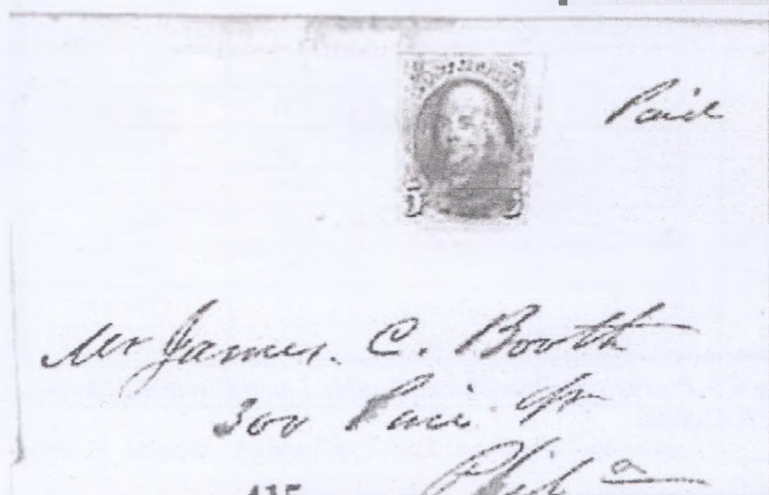 5
Paid
Mr James. C. Booth
300 Race St
Phila
435